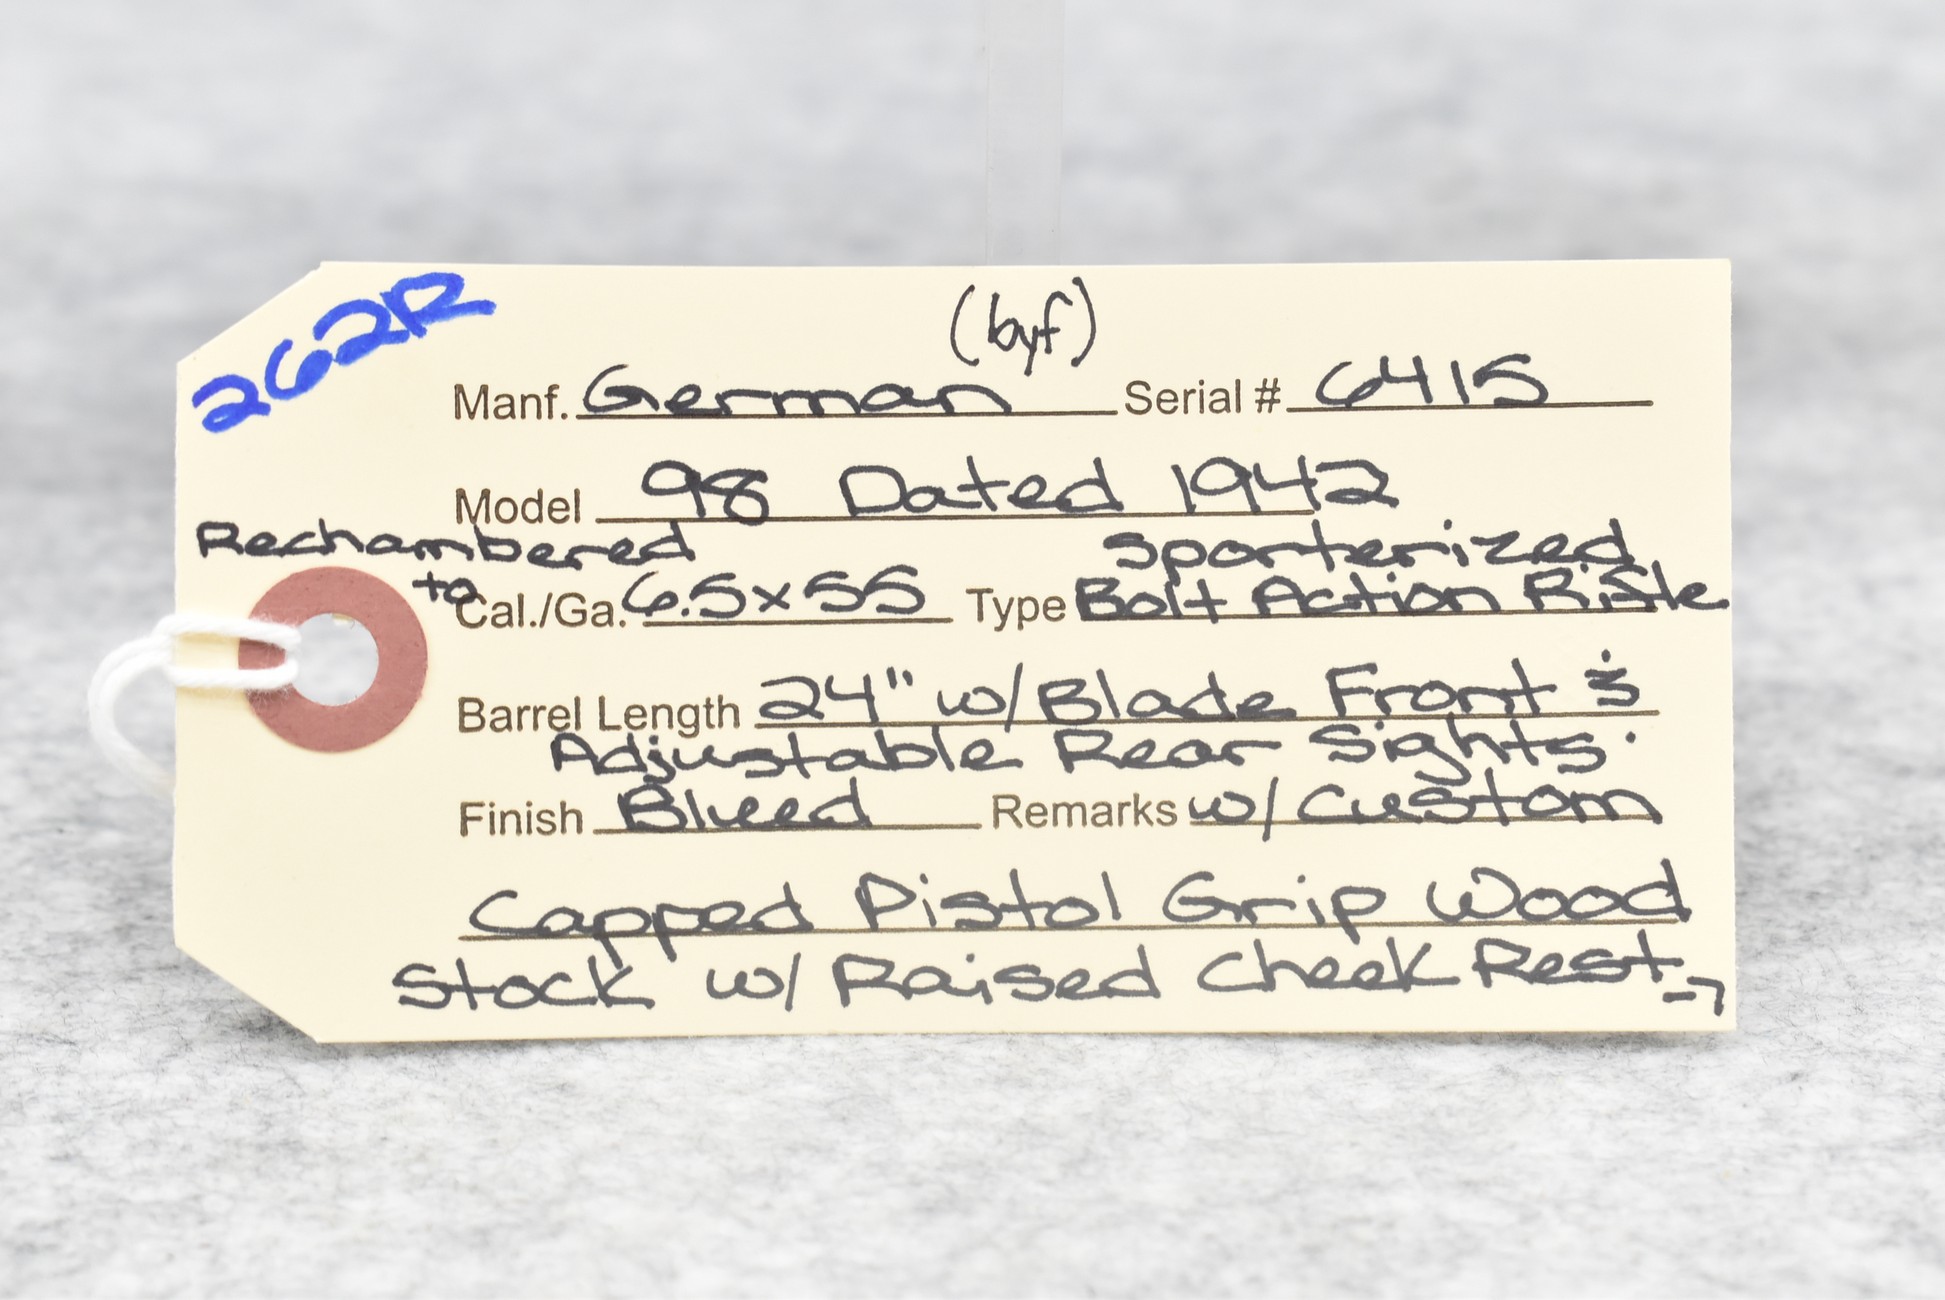 262R
(byf)
Manf. German Serial # 6415
Model 98 Dated 1942
Rechambered Sporterized
to Cal./Ga. 6.5x55 Type Bolt Action Rifle
Barrel Length 24" w/ Blade Front &
Adjustable Rear Sights.
Finish Blued Remarks w/ Custom
Capped Pistol Grip Wood
Stock w/ Raised Cheek Rest →